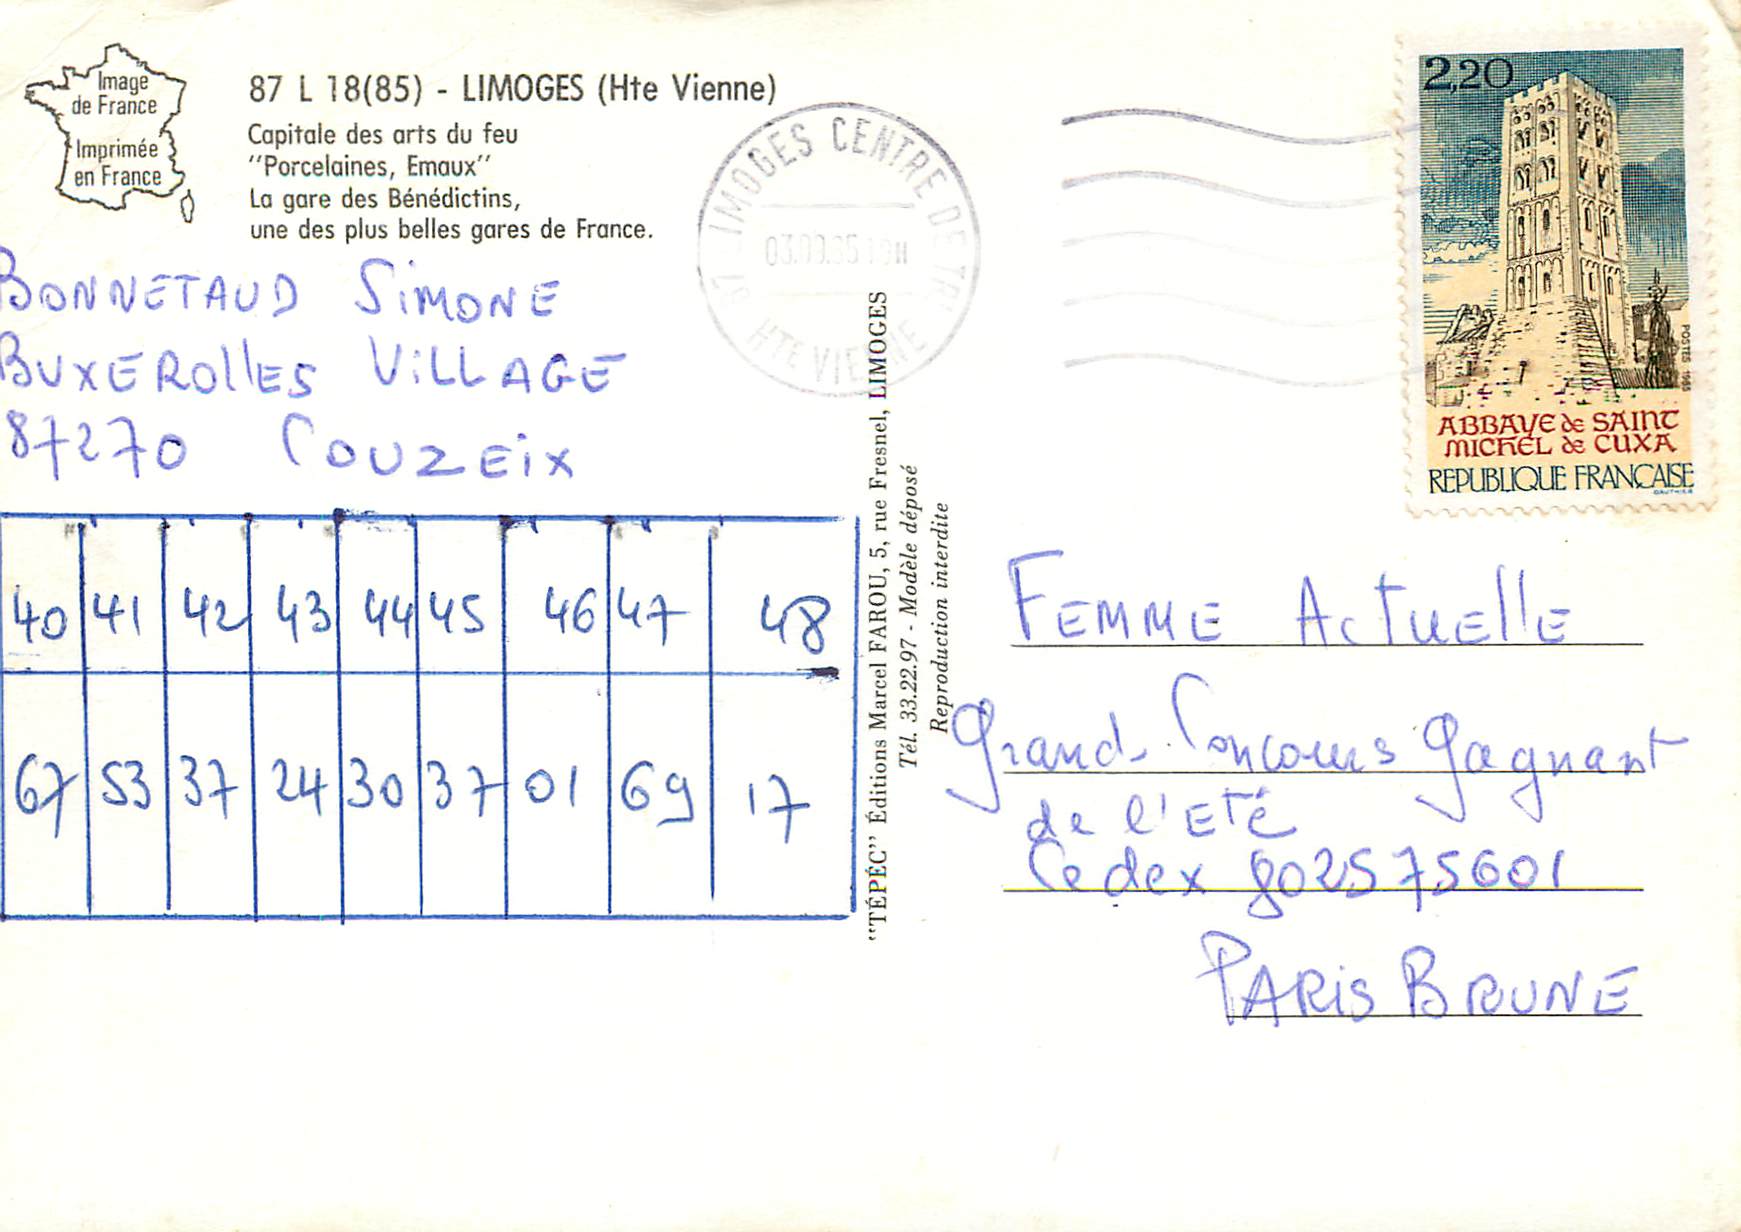 Image
de France
Imprimée
en France
87 L 18(85) - LIMOGES (Hte Vienne)
Capitale des arts du feu
"Porcelaines, Emaux"
La gare des Bénédictins,
une des plus belles gares de France.
BONNETAUD SIMONE
BUXEROllES ViLLAGE
87270 COUZEiX
40 41 42 43 44 45 46 47 48
67 53 37 24 30 37 01 69 17
LIMOGES CENTRE DE TRI
87 HTE VIENNE
"TÉPÉC" Éditions Marcel FAROU, 5, rue Fresnel, LIMOGES
Tél. 33.22.97 - Modèle déposé
Reproduction interdite
2,20
POSTES 1985
ABBAYE de SAINT
MICHEL de CUXA
REPUBLIQUE FRANÇAISE
GAUTHIER
FEMME ACTUElle
Grand Concours Gagnant
de l'ETé
Cedex 802575601
PARiS BRUNE